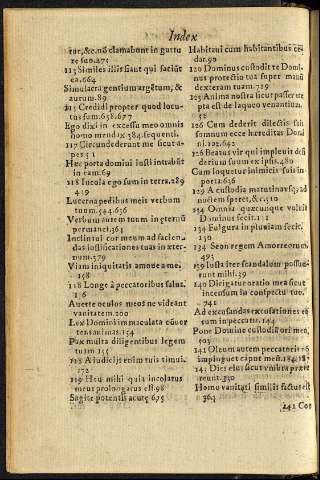 Index
tor, &c. nõ clamabunt in guttu
re suo.275
113 Similes illis fiant qui faciũt
ea.664
Simulacra gentium argẽtum, &
aurum.89
115 Credidi propter quod locu-
tus sum.658.677
Ego dixi in excessu meo omnis
homo mendax 384. sequenti.
117 Circundederunt me sicut a-
pes
Hæc porta domini iusti intrabũt
in eam.69
118 Incola ego sum in terra.289
Lucerna pedibus meis verbum
tuum.544.636
Verbum autem tuum in æternũ
permanet.361
Inclinaui cor meum ad facien-
das iustificationes tuas in æter-
num.579
Viam iniquitatis amoue a me.
158
118 Longè à peccatoribus salus.
Auerte oculos meos ne videant
vanitatem.200
Lex Domini immaculata cõuer
tens animas.154
Pax multa diligentibus legem
tuam
A iudicijs enim tuis timui.
172
119 Heu mihi quia incolatus
meus prolongatus est.98
Sagitæ potentis acutę 675
Habitaui cum habitantibus cę
dar.90
120 Dominus custodit te Domi-
nus protectio tua super manũ
dexteram tuam.719
123 Anima nostra sicut passer ere
pta est de laqueo venantium.
126 Cum dederit dilectis suis
somnum ecce hæreditas Domi
ni.102.642
126 Beatus vir qui impleuit desi
derium suum ex ipsis.480
Cum loquetur inimicis suis in
porta.636
129 A custodia matutina vsq; ad
noctem speret, &c.510
134 Omnia quæcunque voluit
Dominus fecit.12
134 Fulgura in pluuiam fecit.
130
134 Seon regem Amorreorum
493
139 Iusta iter scandalum posue-
runt mihi.39
140 Dirigatur oratio mea sicut
incensum in conspectu tuo.
748
Ad excusandas excusationes in
peccatis.
Pone Domine custodiã ori meo,
503
141 Oleum autem peccatoris nõ
impinguet caput meũ.
143 Dies eius sicut vmbra præte
reunt.350
Homo vanitati similis factus est
363